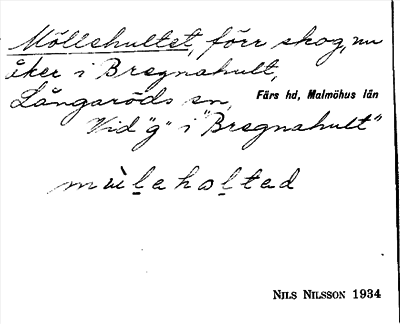 Möllehultet, förr skog, nu
åker i Bregnahult,
Långaröds sn, Färs hd, Malmöhus län
Vid "g" i "Bregnahult"
mùlaholtad
NILS NILSSON 1934